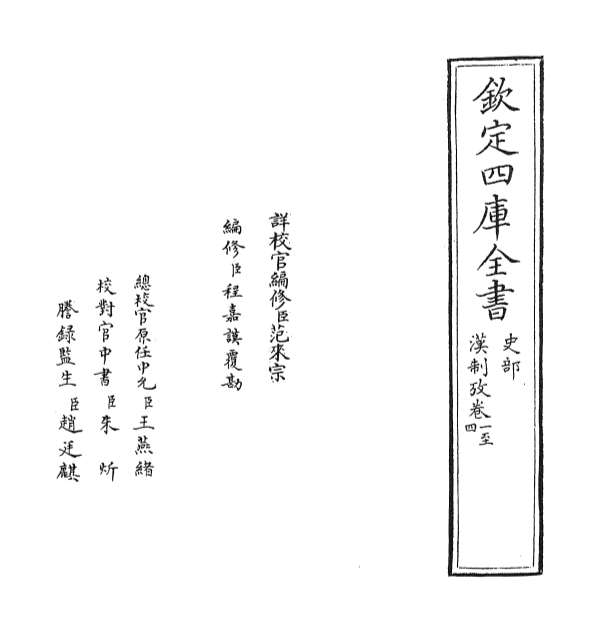 欽定四庫全書
史部
漢制攷卷一至四
詳校官編修臣范來宗
編修臣程嘉謨覆勘
總校官原任中允臣王燕緒
校對官中書臣朱炘
謄錄監生臣趙廷麒